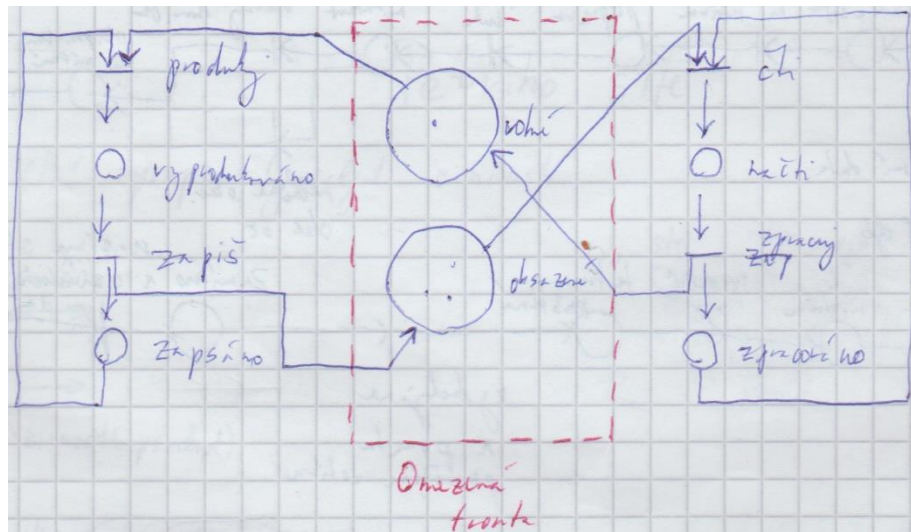 produkuj
vyprodukováno
zapiš
zapsáno
volné
obsazené
čti
načti
zpracuj
zpracováno
Omezená
fronta